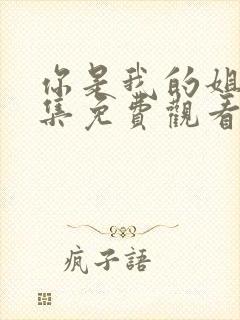 你是我的姐
集免費觀看
疯子語